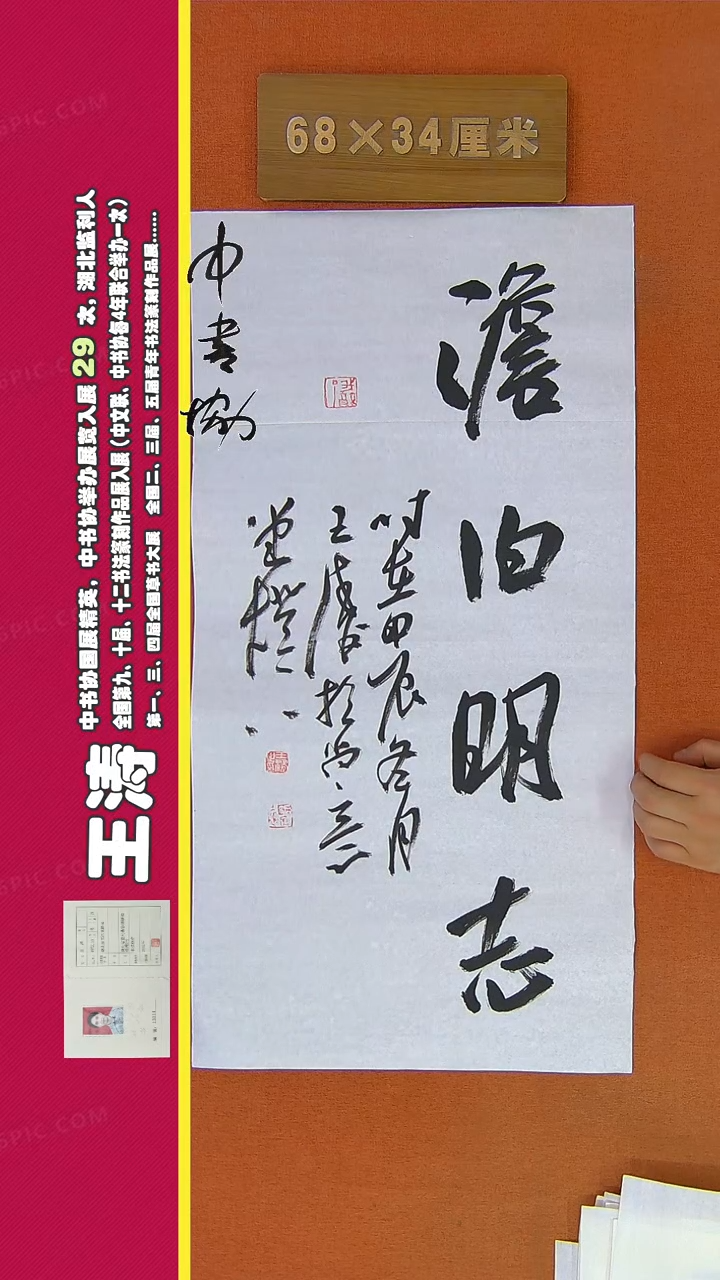 68×34厘米
澹泊明志
时在甲辰冬月
王涛书於尚
中書協
王涛
中书协国展精英，中书协举办展览入展 29 次，湖北监利人
全国第九、十届、十二书法篆刻作品展入展（中文联、中书协每4年联合举办一次）
第一、三、四届全国草书大展 全国二、三届、五届青年书法篆刻作品展......